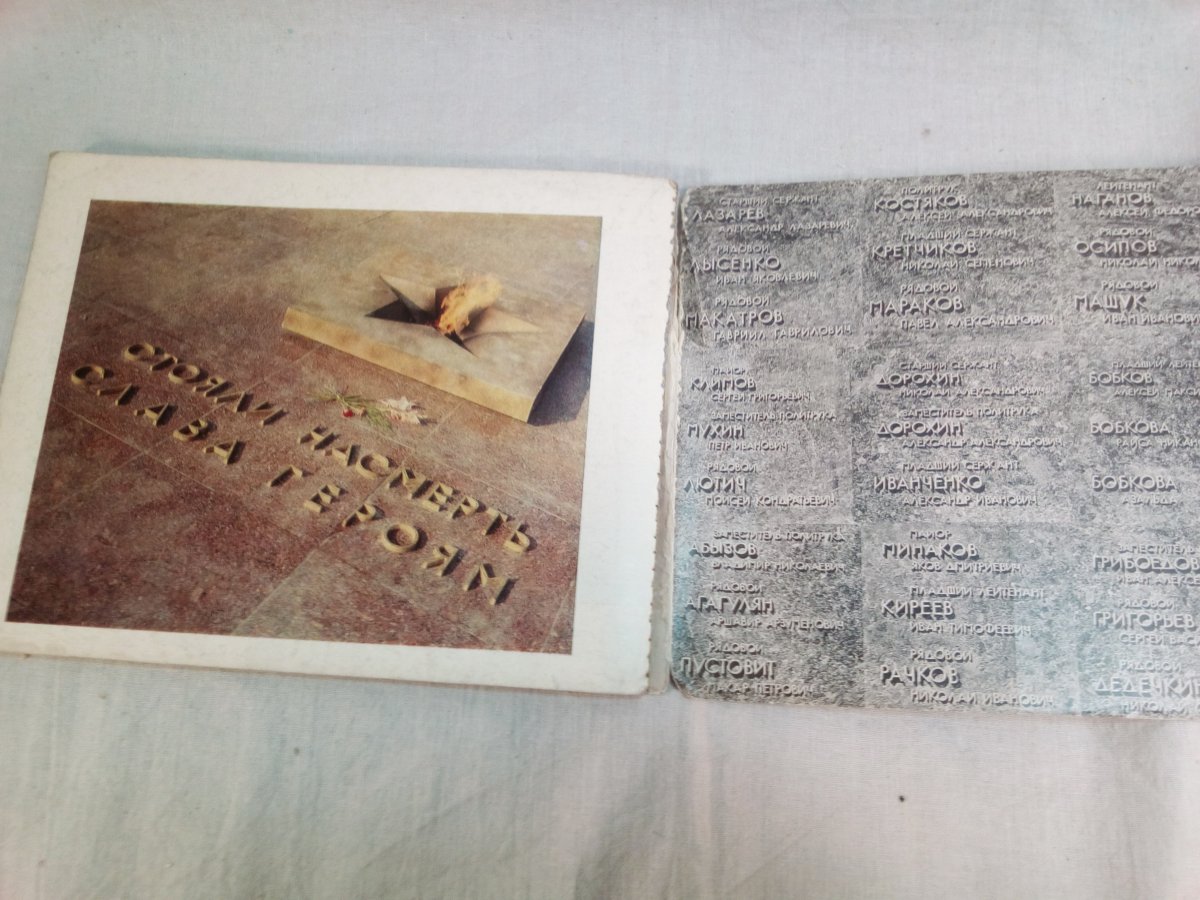 СТОЯЛИ НАСМЕРТЬ
СЛАВА ГЕРОЯМ
СТАРШИЙ СЕРЖАНТ
ЛАЗАРЕВ
АЛЕКСАНДР ЛАЗАРЕВИЧ
РЯДОВОЙ
ЛЫСЕНКО
ИВАН ЯКОВЛЕВИЧ
РЯДОВОЙ
МАКАТРОВ
ГАВРИИЛ ГАВРИЛОВИЧ
МАЙОР
КЛИМОВ
СЕРГЕЙ ГРИГОРЬЕВИЧ
ЗАМЕСТИТЕЛЬ ПОЛИТРУКА
МУХИН
ПЕТР ИВАНОВИЧ
РЯДОВОЙ
ЛЮТИЧ
МОИСЕЙ КОНДРАТЬЕВИЧ
ЗАМЕСТИТЕЛЬ ПОЛИТРУКА
АБЫЗОВ
ВЛАДИМИР НИКОЛАЕВИЧ
РЯДОВОЙ
АГАГУЛЯН
АРШАВИР АРЗУМЕНОВИЧ
РЯДОВОЙ
ПУСТОВИТ
МАКАР ПЕТРОВИЧ
ПОЛИТРУК
КОСТЯКОВ
АЛЕКСЕЙ АЛЕКСАНДРОВИЧ
МЛАДШИЙ СЕРЖАНТ
КРЕТЧИКОВ
НИКОЛАЙ СЕМЕНОВИЧ
РЯДОВОЙ
МАРАКОВ
ПАВЕЛ АЛЕКСАНДРОВИЧ
СТАРШИЙ СЕРЖАНТ
ДОРОХИН
НИКОЛАЙ АЛЕКСАНДРОВИЧ
ЗАМЕСТИТЕЛЬ ПОЛИТРУКА
ДОРОХИН
АЛЕКСАНДР АЛЕКСАНДРОВИЧ
МЛАДШИЙ СЕРЖАНТ
ИВАНЧЕНКО
АЛЕКСАНДР ИВАНОВИЧ
МАЙОР
МИНАКОВ
ЯКОВ ДМИТРИЕВИЧ
МЛАДШИЙ ЛЕЙТЕНАНТ
КИРЕЕВ
ИВАН ТИМОФЕЕВИЧ
РЯДОВОЙ
РАЧКОВ
НИКОЛАЙ ИВАНОВИЧ
ЛЕЙТЕНАНТ
НАГАНОВ
АЛЕКСЕЙ ФЕДОР
РЯДОВОЙ
ОСИПОВ
НИКОЛАЙ НИКО
РЯДОВОЙ
МАЩУК
ИВАН ИВАНОВИ
МЛАДШИЙ ЛЕЙТ
БОБКОВ
АЛЕКСЕЙ МАК
БОБКОВА
РАИСА НИКА
БОБКОВА
АЗАЛЬДА
ЗАМЕСТИТЕЛЬ
ГРИБОЕДОВ
ИВАН АЛЕКС
РЯДОВОЙ
ГРИГОРЬЕВ
СЕРГЕЙ ВАС
РЯДОВОЙ
ДЕДЕЧКИ
НИКОЛАЙ ИВАНО